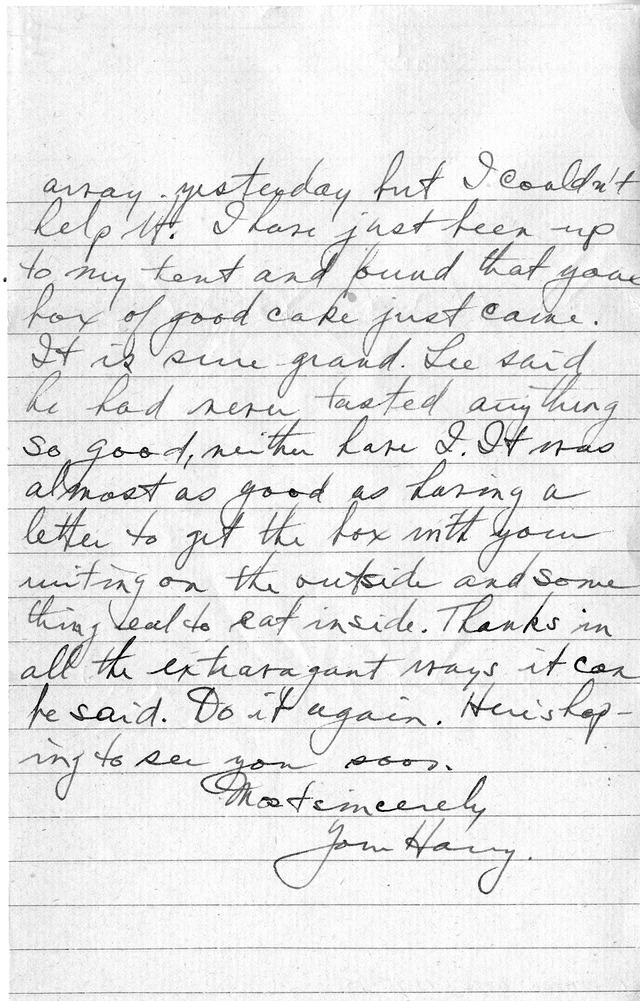 away yesterday but I couldn't
help it. I have just been up
to my tent and found that your
box of good cake just came.
It is sure grand. Lee said
he had never tasted anything
so good, neither have I. It was
almost as good as having a
letter to get the box with your
writing on the outside and some
thing real to eat inside. Thanks in
all the extravagant ways it can
be said. Do it again. Here's hop-
ing to see you soon.
Most sincerely
Your Harry.